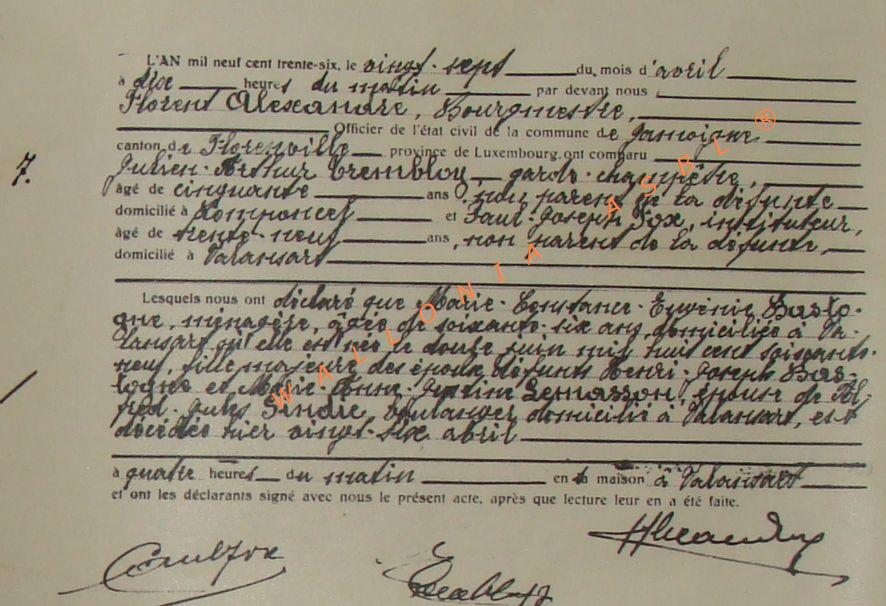 L'AN mil neuf cent trente-six, le vingt-sept du mois d'avril
à dix heures du matin par devant nous
Florent Alexandre, Bourgmestre,
Officier de l'état civil de la commune de Jamoigne
canton de Florenville province de Luxembourg ont comparu
7. Julien-Arthur Trembloy garde-champêtre,
âgé de cinquante ans, non parent de la défunte
domicilié à Romponcel et Paul-Joseph Fox, instituteur,
âgé de trente-neuf ans, non parent de la défunte,
domicilié à Valansart
Lesquels nous ont déclaré que Marie-Constance-Eugénie Basto-
gne, ménagère, âgée de soixante-six ans, domiciliée à Va-
lansart qu'elle est née le douze juin mil huit cent soixante-
neuf, fille majeure des époux défunts Henri-Joseph Bas-
togne et Marie-Anne-Justine Lemasson, épouse de Al-
fred-Jules Sindic, boulanger domicilié à Valansart, est
décédée hier vingt-six abril
à quatre heures du matin en sa maison à Valansart
et ont les déclarants signé avec nous le présent acte, après que lecture leur en a été faite.
WALLONIA ASBL ®